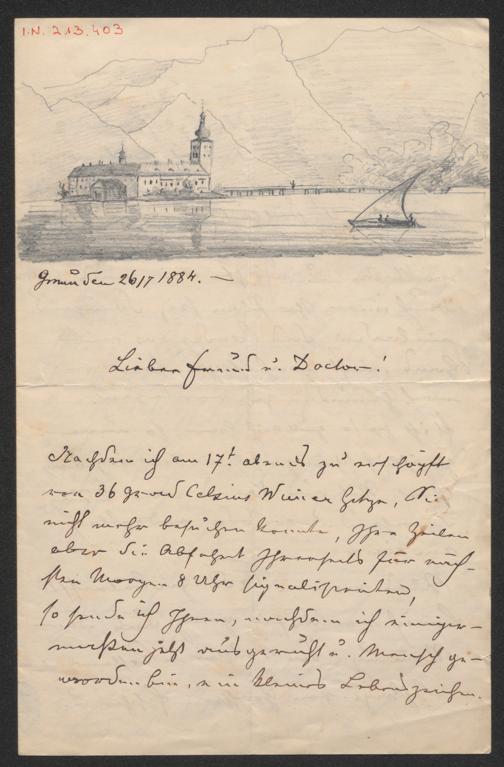 I.N. 213.403
Gmunden 26/7 1884. —
Lieber Freund u. Doctor!
Nachdem ich am 17t. abends zu erschöpft
von 36 Grad Celsius Wiener Hitze, Sie
nicht mehr besuchen konnte, Ihre Zeilen
aber die Abfahrt Ihrerseits für näch-
sten Morgen 8 Uhr signalisirten,
so sende ich Ihnen, nachdem ich einiger-
maßen jetzt ausgeruht u. Mensch ge-
worden bin, ein kleines Lebenszeichen.